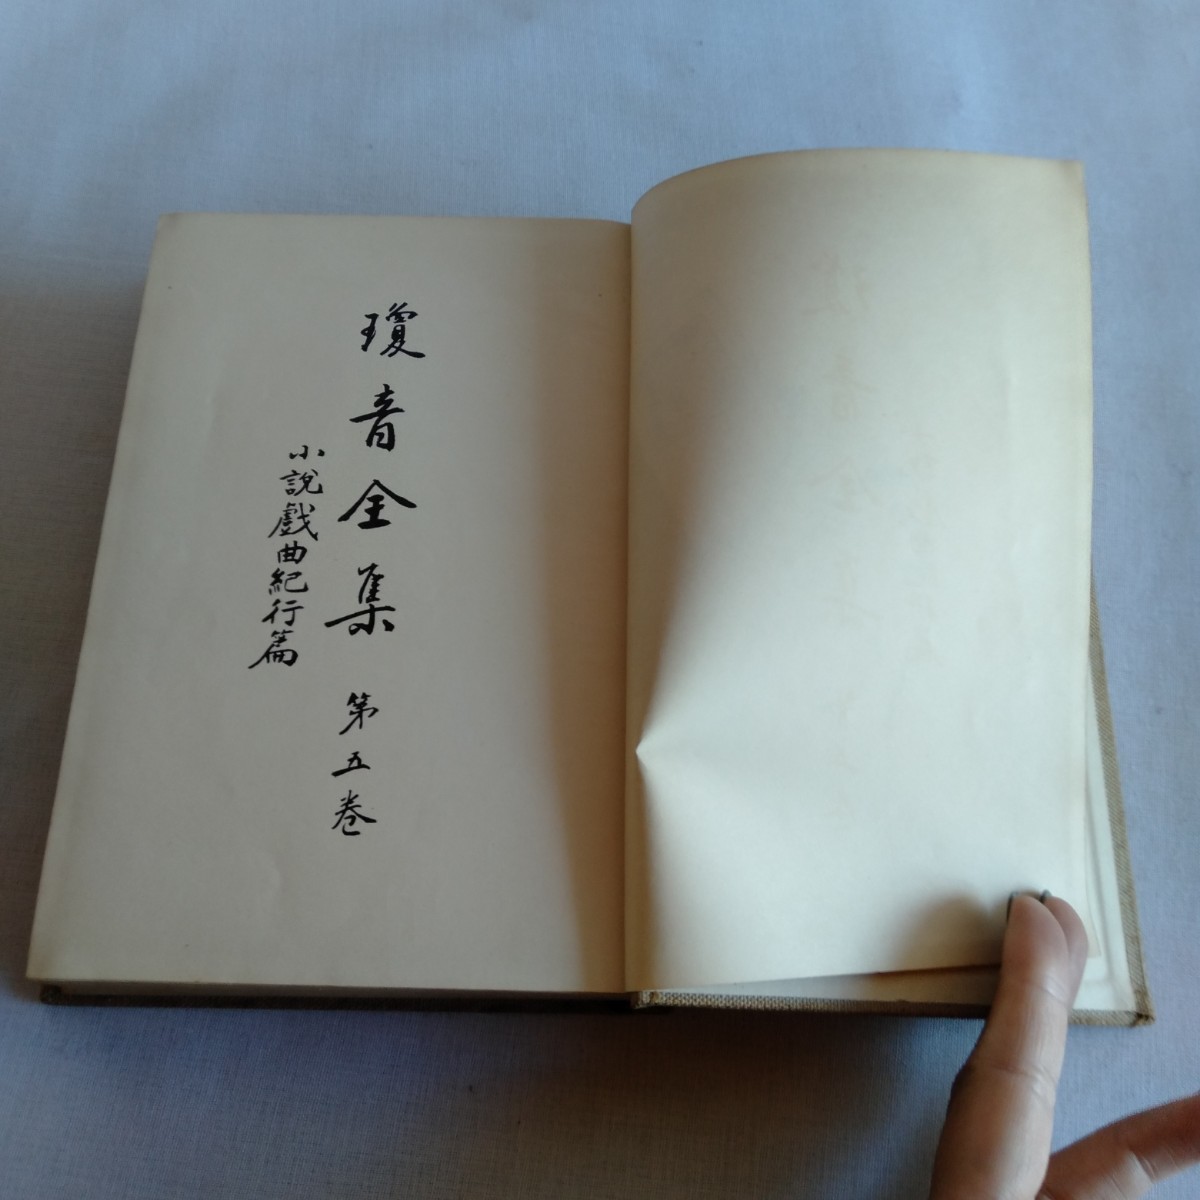 瓊音全集 第五巻
小說戲曲紀行篇